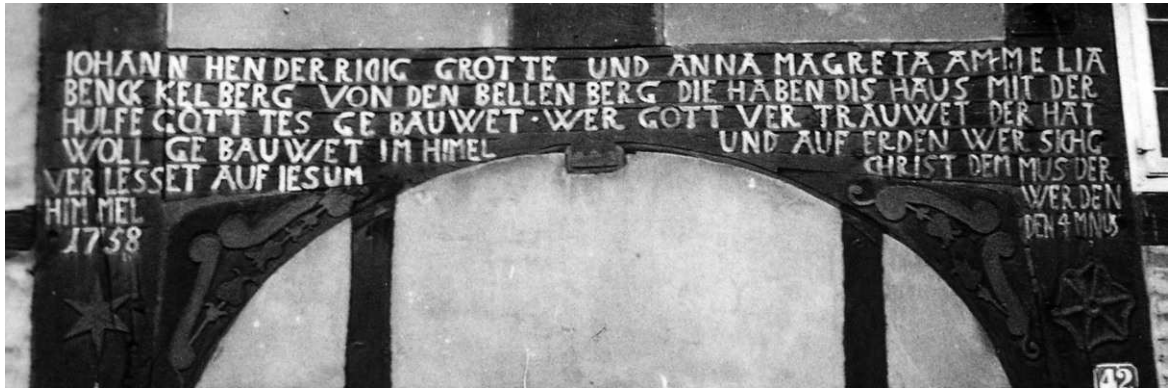 IOHANN HENDERRICIG GROTTE UND ANNA MAGRETA AMMELIA
BENCK KELBERG VON DEN BELLEN BERG DIE HABEN DIS HAUS MIT DER
HULFE GOTT TES GE BAUWET · WER GOTT VER TRAUWET DER HAT
WOLL GE BAUWET IM HIMEL UND AUF ERDEN WER SICHG
VER LESSET AUF IESUM CHRIST DEM MUS DER
HIM MEL WERDEN
1758 DEN 4 MNUS
42